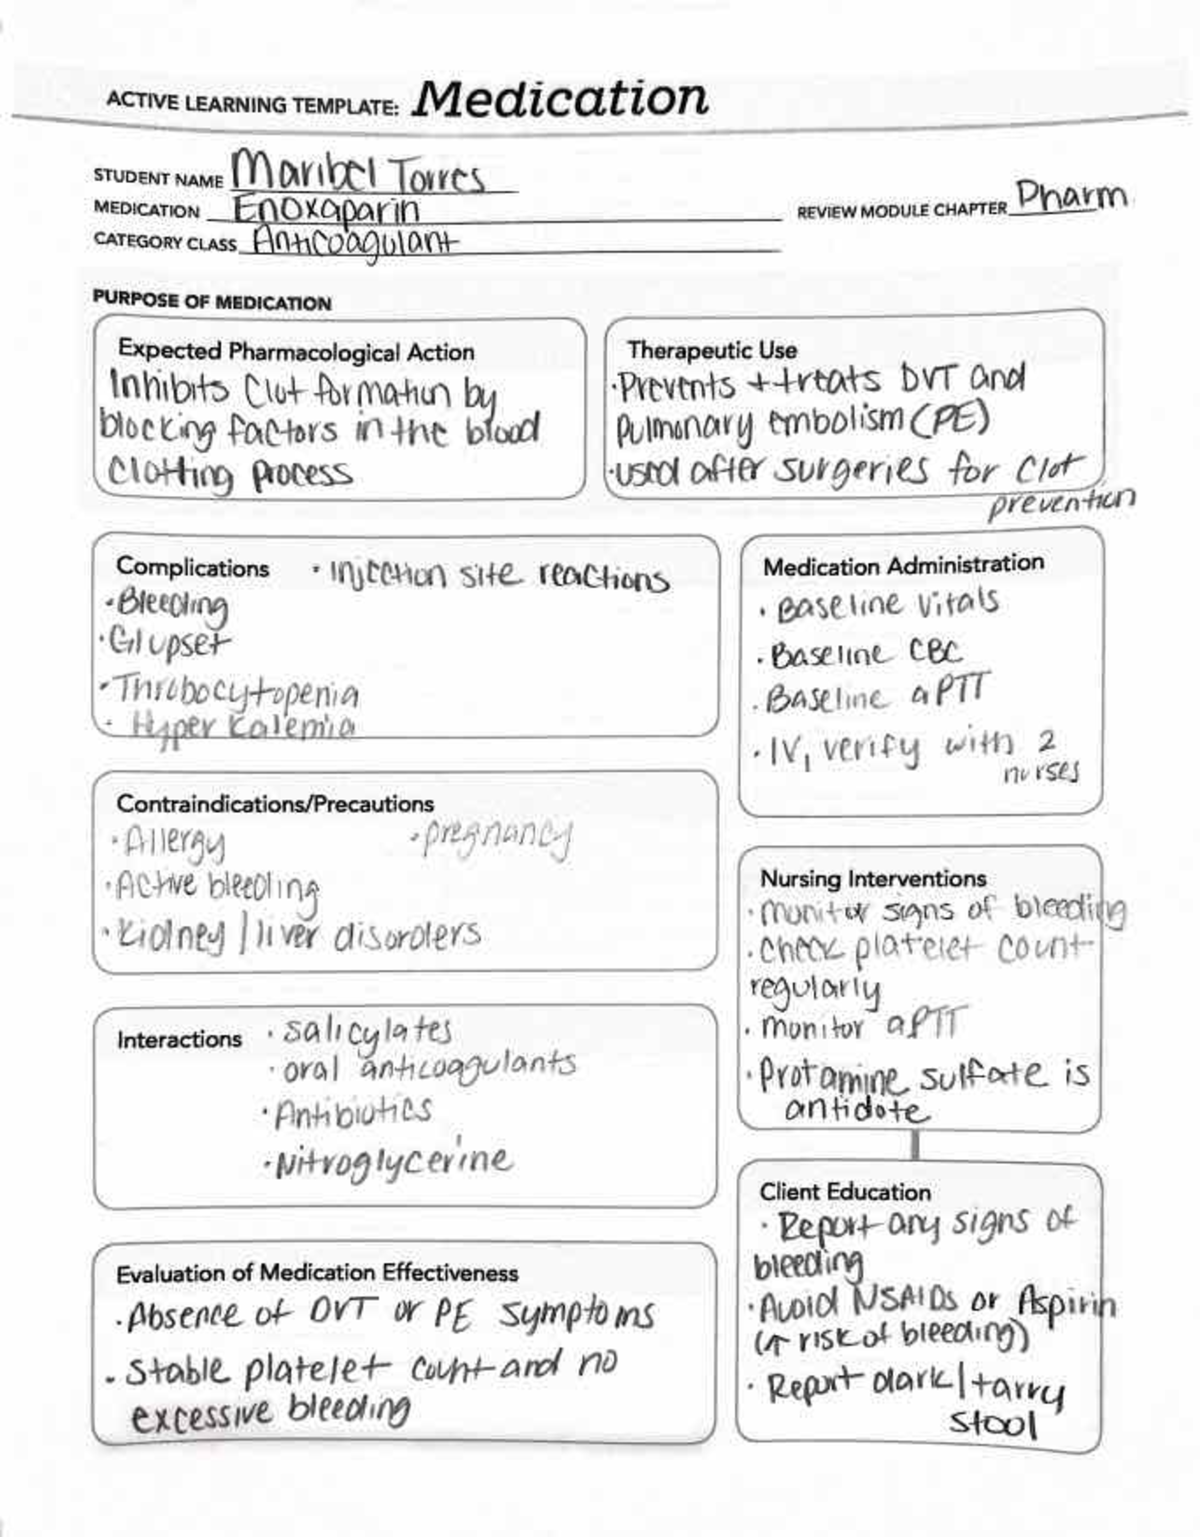 ACTIVE LEARNING TEMPLATE: Medication
STUDENT NAME Maribel Torres
MEDICATION Enoxaparin
REVIEW MODULE CHAPTER Pharm
CATEGORY CLASS Anticoagulant
PURPOSE OF MEDICATION
Expected Pharmacological Action
Inhibits Clot formation by
blocking factors in the blood
Clotting process
Therapeutic Use
·Prevents + treats DVT and
Pulmonary embolism (PE)
·used after surgeries for Clot
prevention
Complications
· Injection site reactions
·Bleeding
·GI upset
·Throbocytopenia
· Hyper Kalemia
Medication Administration
· Baseline vitals
· Baseline CBC
· Baseline aPTT
· IV, verify with 2
nurses
Contraindications/Precautions
·Allergy
·pregnancy
·Active bleeding
·Kidney / liver disorders
Nursing Interventions
·monitor signs of bleeding
·Check platelet count
regularly
· monitor aPTT
·Protamine sulfate is
antidote
Interactions
·salicylates
·oral anticoagulants
·Antibiotics
·Nitroglycerine
Client Education
·Report any signs of
bleeding
·Avoid NSAIDs or Aspirin
(↑ risk of bleeding)
· Report dark/tarry
stool
Evaluation of Medication Effectiveness
·Absence of DVT or PE symptoms
· Stable platelet count and no
excessive bleeding